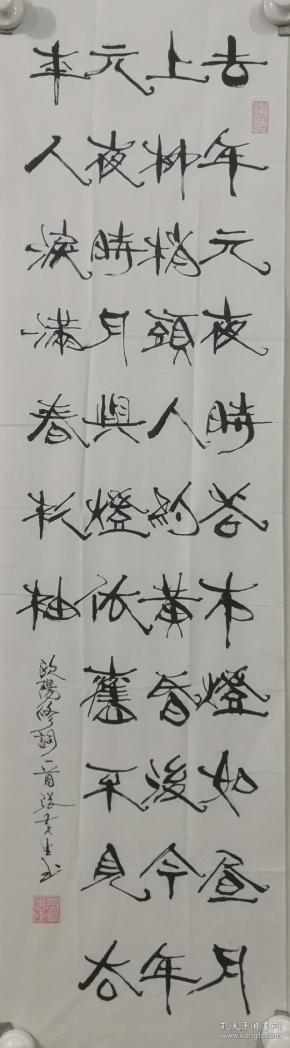 去年元夜時花市燈如昼月
上柳梢頭人約黄昏後今年
元夜時月與燈依舊不見去
年人淚滿春衫袖
欧陽修詞一首張
孔夫子旧书网